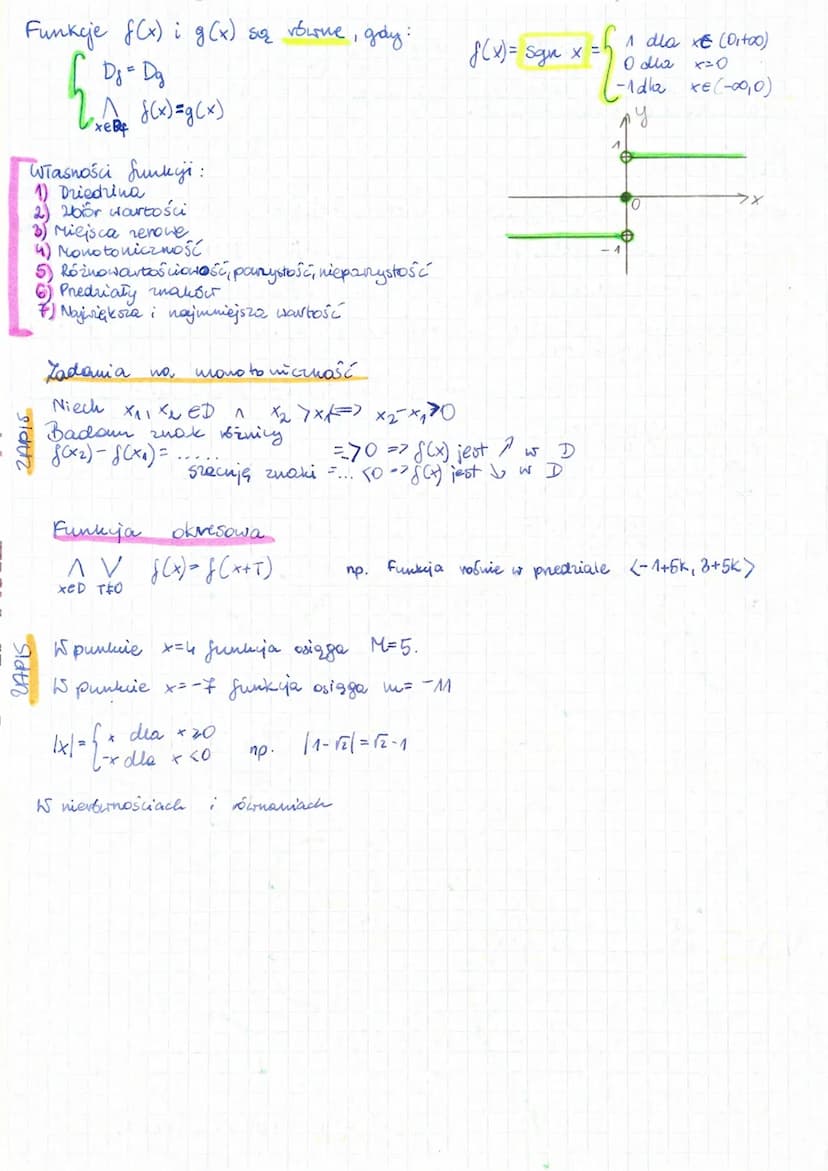 Funkcje f(x) i g(x) są równe, gdy:
D_f = D_g
⋀ f(x)=g(x)
x∈D_f
f(x)= sgn x = { 1 dla x∈(0,+∞)
0 dla x=0
-1 dla x∈(-∞,0)
y
1
0
x
-1
Własności funkcji:
1) Dziedzina
2) Zbiór wartości
3) Miejsca zerowe
4) Monotoniczność
5) Różnowartościowość, parzystość, nieparzystość
6) Przedziały znaków
7) Największa i najmniejsza wartość
Zadania na monotoniczność
ZAPIS
Niech x₁, x₂ ∈D ∧ x₂ > x₁ <=> x₂-x₁>0
Badam znak różnicy
f(x₂)-f(x₁)= ...... = >0 => f(x) jest ↗ w D
szacuję znaki =... <0 => f(x) jest ↘ w D
Funkcja okresowa
⋀ ⋁ f(x)=f(x+T)
x∈D T≠0
np. Funkcja rośnie w przedziale <-1+5k, 3+5k>
ZAPIS
W punkcie x=4 funkcja osiąga M=5.
W punkcie x=-7 funkcja osiąga m= -11
|x|= { x dla x≥0
-x dla x<0
np. |1-√2|=√2-1
W nierównościach i równaniach